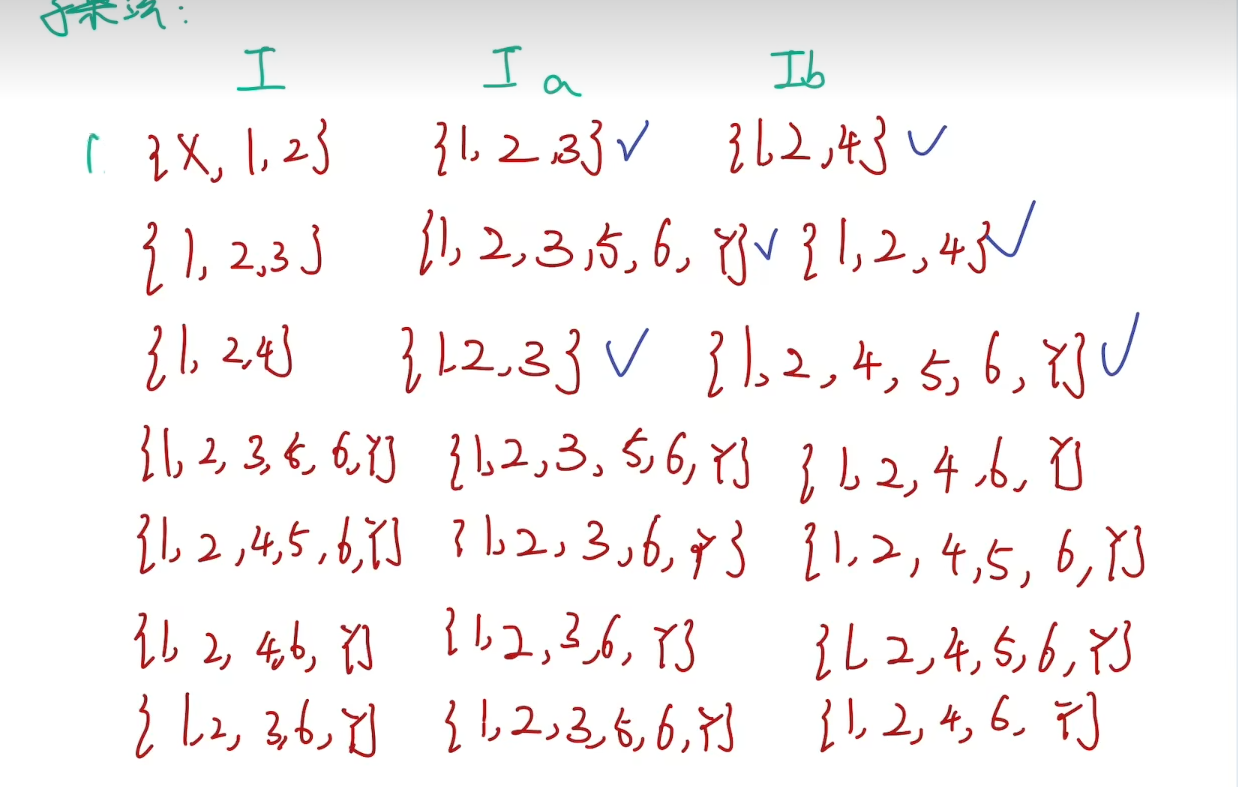 子集法:
I Ia Ib
{X, 1, 2} {1, 2, 3} ✓ {1, 2, 4} ✓
{1, 2, 3} {1, 2, 3, 5, 6, Y} ✓ {1, 2, 4} ✓
{1, 2, 4} {1, 2, 3} ✓ {1, 2, 4, 5, 6, Y} ✓
{1, 2, 3, 5, 6, Y} {1, 2, 3, 5, 6, Y} {1, 2, 4, 6, Y}
{1, 2, 4, 5, 6, Y} {1, 2, 3, 6, Y} {1, 2, 4, 5, 6, Y}
{1, 2, 4, 6, Y} {1, 2, 3, 6, Y} {1, 2, 4, 5, 6, Y}
{1, 2, 3, 6, Y} {1, 2, 3, 5, 6, Y} {1, 2, 4, 6, Y}